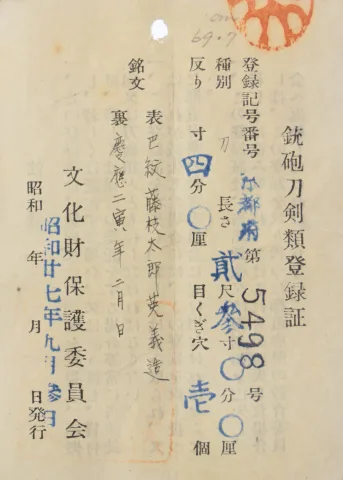 cm
69.7
銃砲刀剣類登録証
登録記号番号 京都府 第 5498 号
種別 刀 長さ 貳尺参寸〇分〇厘
反り 寸四分〇厘 目くぎ穴 壱個
銘文 表 巴紋藤枝太郎英義造
裏 慶應二寅年二月日
文化財保護委員会
昭和 年 月 日発行
昭和廿七年九月参日